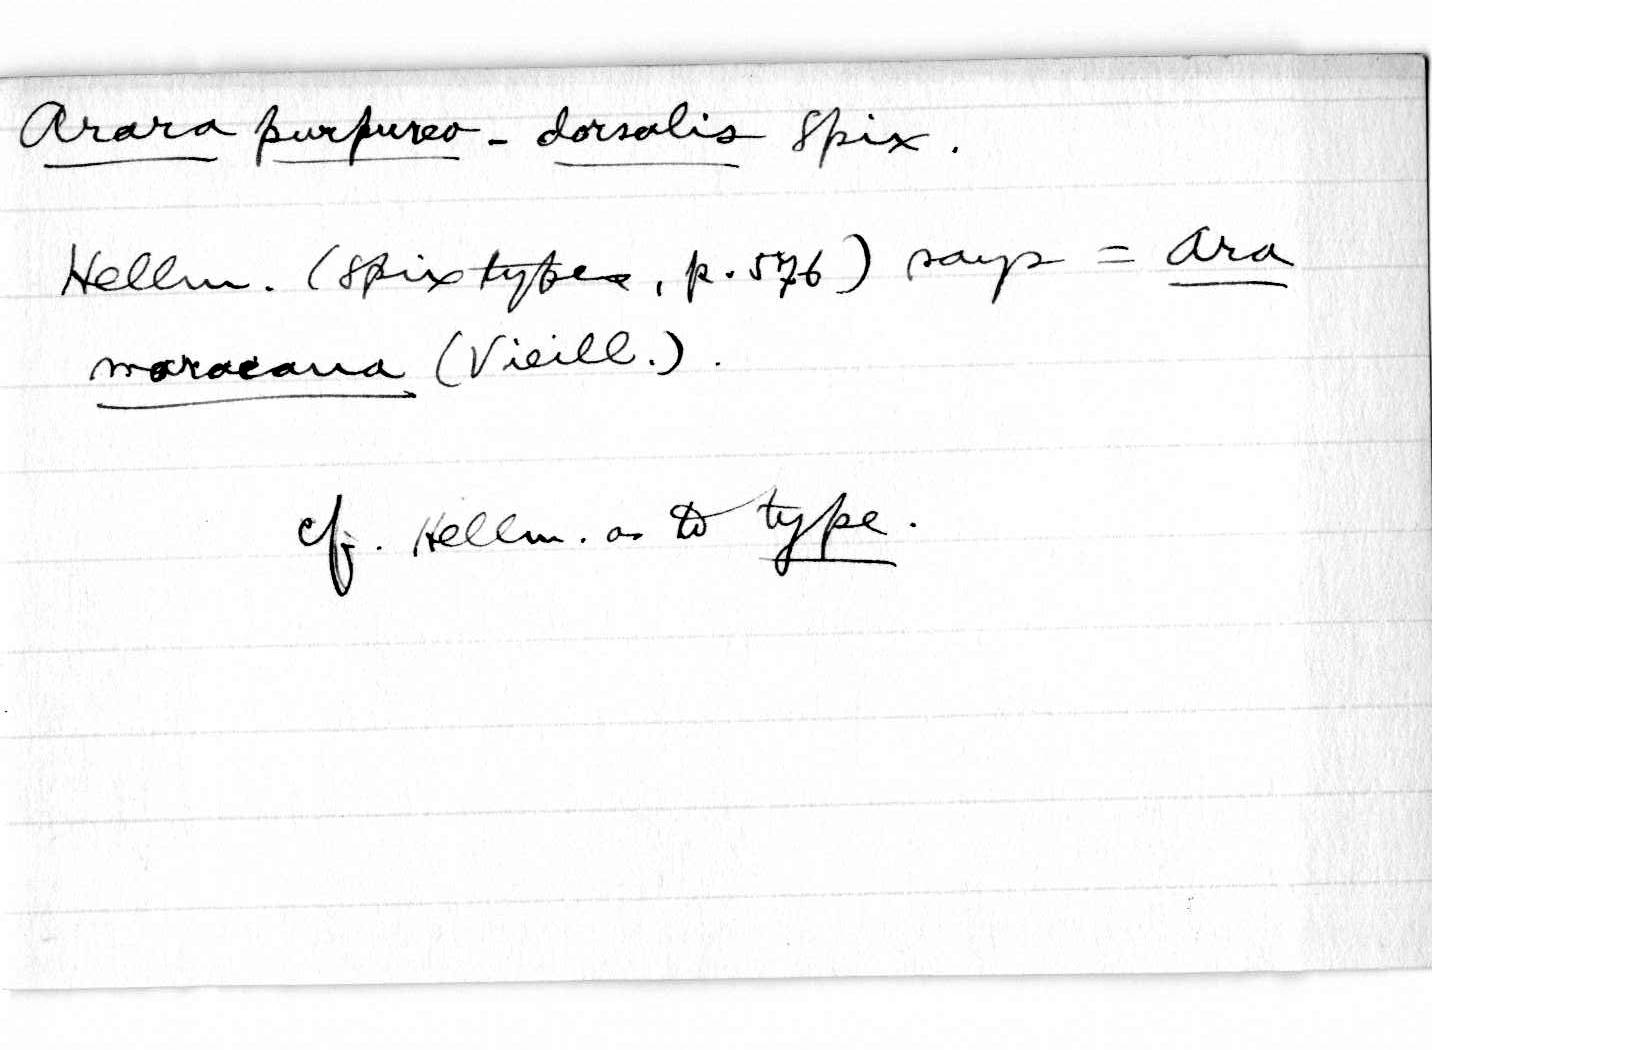 Arara purpureo-dorsalis Spix.
Hellm. (Spix types, p. 576) says = Ara
maracana (Vieill.).
cf. Hellm. as to type.